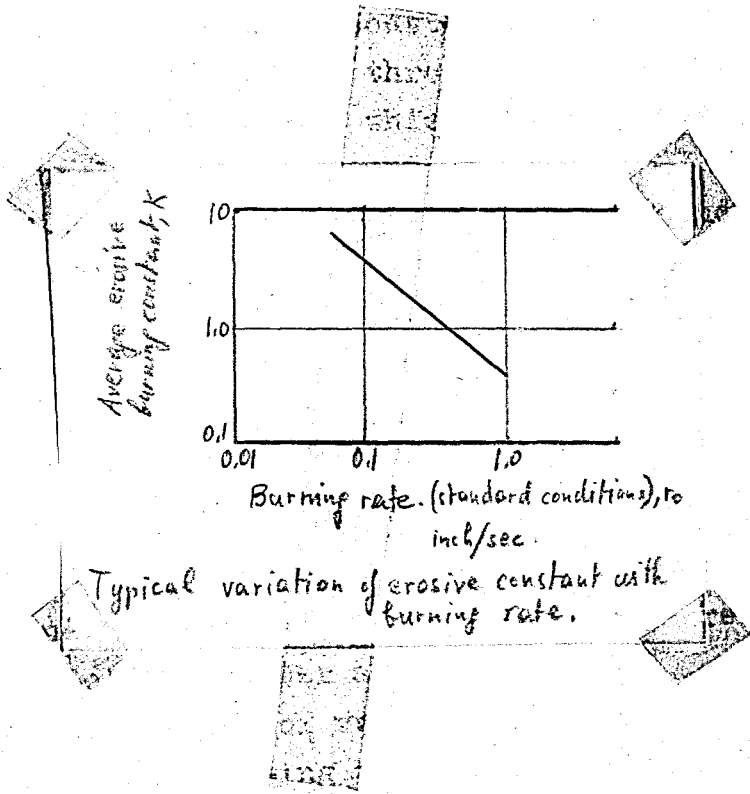 Average erosive
burning constant, K
10
1.0
0.1
0.01
0.1
1.0
Burning rate. (standard conditions), ro
inch/sec.
Typical variation of erosive constant with
burning rate.